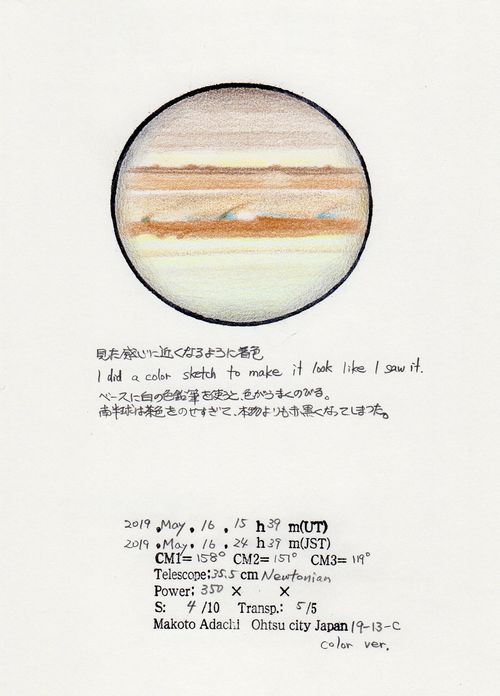 見た感じに近くなるように着色
I did a color sketch to make it look like I saw it.
ベースに白の色鉛筆を使うと、色がうまくのびる。
南半球は茶色をのせすぎて、本物よりも赤黒くなってしまった。
2019 . May . 16 . 15 h 39 m(UT)
2019 . May . 16 . 24 h 39 m(JST)
CM1= 158° CM2= 151° CM3= 119°
Telescope: 35.5 cm Newtonian
Power: 350 × ×
S: 4 /10 Transp.: 5 /5
Makoto Adachi Ohtsu city Japan 19-13-C
color ver.